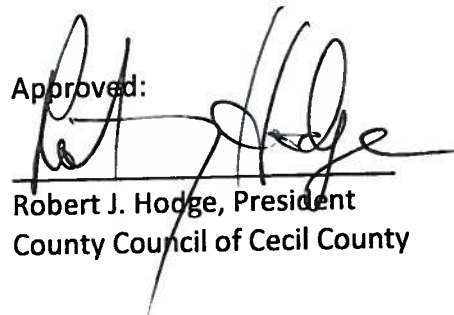 Approved:
Robert J. Hodge, President
County Council of Cecil County